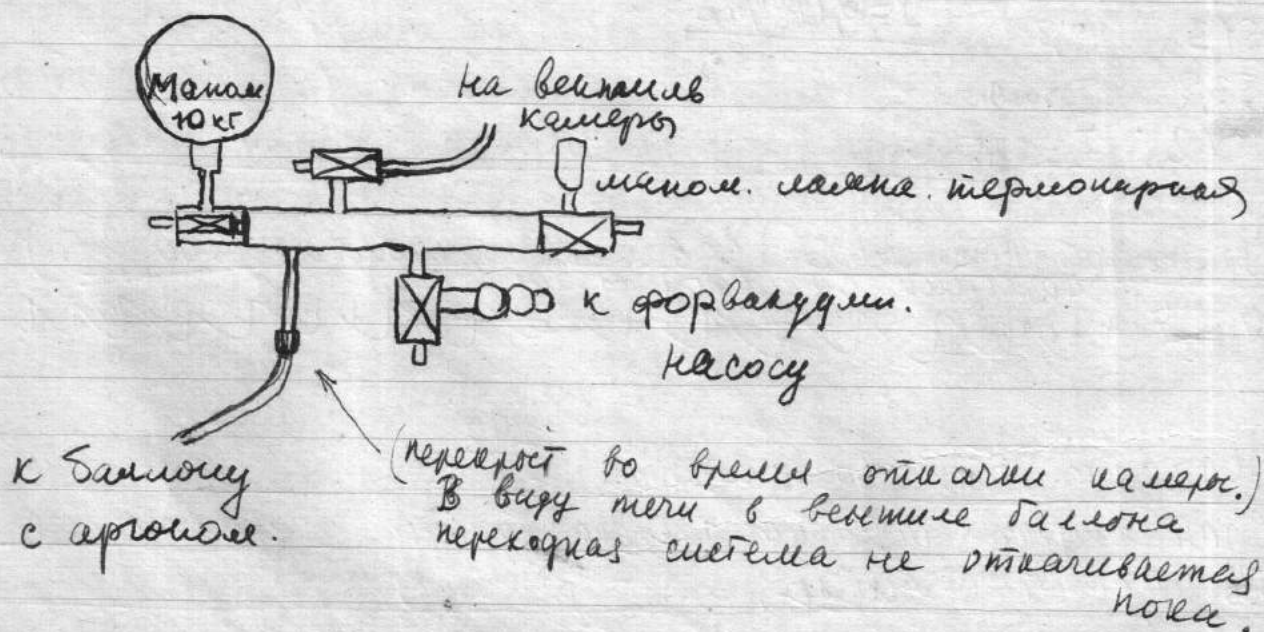 Маном
10 кг
на вентиль
камеры
маном. лампа. термопарная
к форвакуумн.
насосу
к баллону
с аргоном.
(перекрыт во время откачки камеры.)
В виду течи в вентиле баллона
переходная система не откачивается
пока.